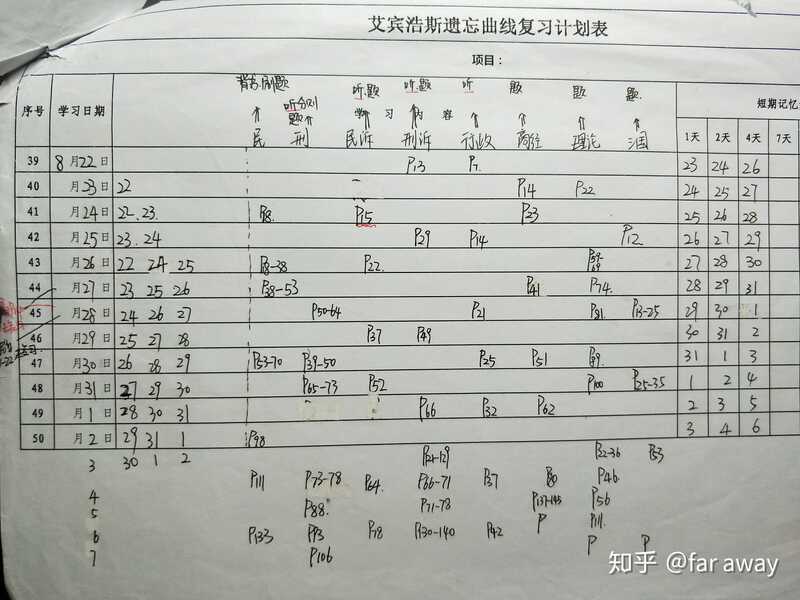 艾宾浩斯遗忘曲线复习计划表
项目：
序号 学习日期 学习内容 短期记忆
背书.刷题 听.题 听.题 听 题 题 题
听分则 题
民 刑 民诉 刑诉 行政 商经 理论 三国 1天 2天 4天 7天
39 8月22日 P13 P1 23 24 26
40 月23日 22 P14 P22 24 25 27
41 月24日 22.23 P8. P15 P23 25 26 28
42 月25日 23.24 P29 P14 P12 26 27 29
43 月26日 22 24 25 P8-38 P22 P59-69 27 28 30
44 月27日 23 25 26 P38-53 P41 P74. 28 29 31
45 月28日 24 26 27 P50-64 P21 P81 P13-25 29 30 1
46 月29日 25 27 28 P37 P49 30 31 2
47 月30日 26 28 29 P53-70 P39-50 P25 P51 P89. 31 1 3
48 月31日 27 29 30 P65-73 P52 P100 P25-35 1 2 4
49 月1日 28 30 31 P66 P32 P62 2 3 5
50 月2日 29 31 1 P98 3 4 6
3 30 1 2 P32-36 P53
P111 P73-78 P64. P66-71 P37 P80 P46
4 P88. P71-78 P56
5 P111.
6 P133 P93 P78 P130-140 P42 P
7 P106 P P
知乎 @far away